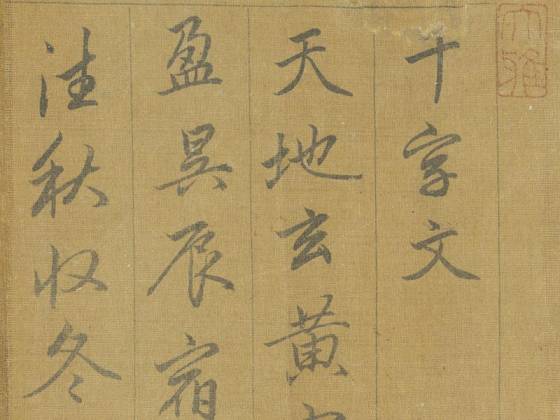 千字文
天地玄黃
盈昃辰宿
往秋收冬